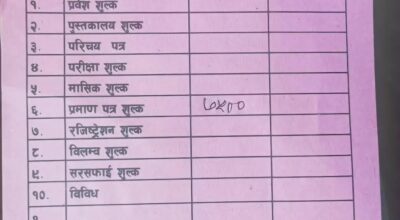 १. प्रवेश शुल्क
२. पुस्तकालय शुल्क
३. परिचय पत्र
४. परीक्षा शुल्क
५. मासिक शुल्क
६. प्रमाण पत्र शुल्क
७. रजिष्ट्रेशन शुल्क
८. विलम्व शुल्क
९. सरसफाई शुल्क
१०. विविध